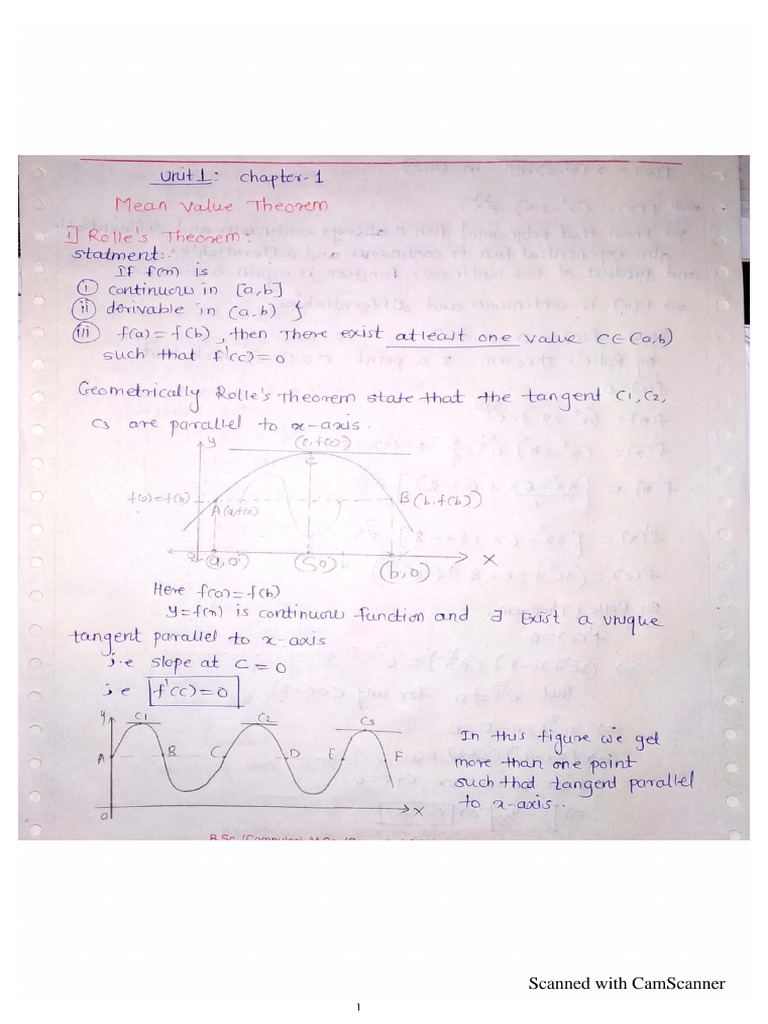 Unit 1: Chapter-1
Mean Value Theorem
i] Rolle's Theorem:
statment:-
If f(x) is
(i) continuous in [a,b]
(ii) derivable in (a,b) }
(iii) f(a)=f(b), then There exist atleast one value C∈(a,b)
such that f'(c)=0
Geometrically Rolle's Theorem state that the tangent C1, C2,
C3 are parallel to x-axis.
y
(c,f(c))
C
f(a)=f(b)
A(a,f(a))
B(b,f(b))
(a,0)
b
(b,0)
X
Here f(a)=f(b)
y=f(x) is continuous function and ∃ Exist a unique
tangent parallel to x-axis
i.e slope at C=0
i.e f'(c)=0
y
C1
C2
C3
A
B
C
D
E
F
O
X
In this figure we get
more than one point
such that tangent parallel
to x-axis..
Scanned with CamScanner
1